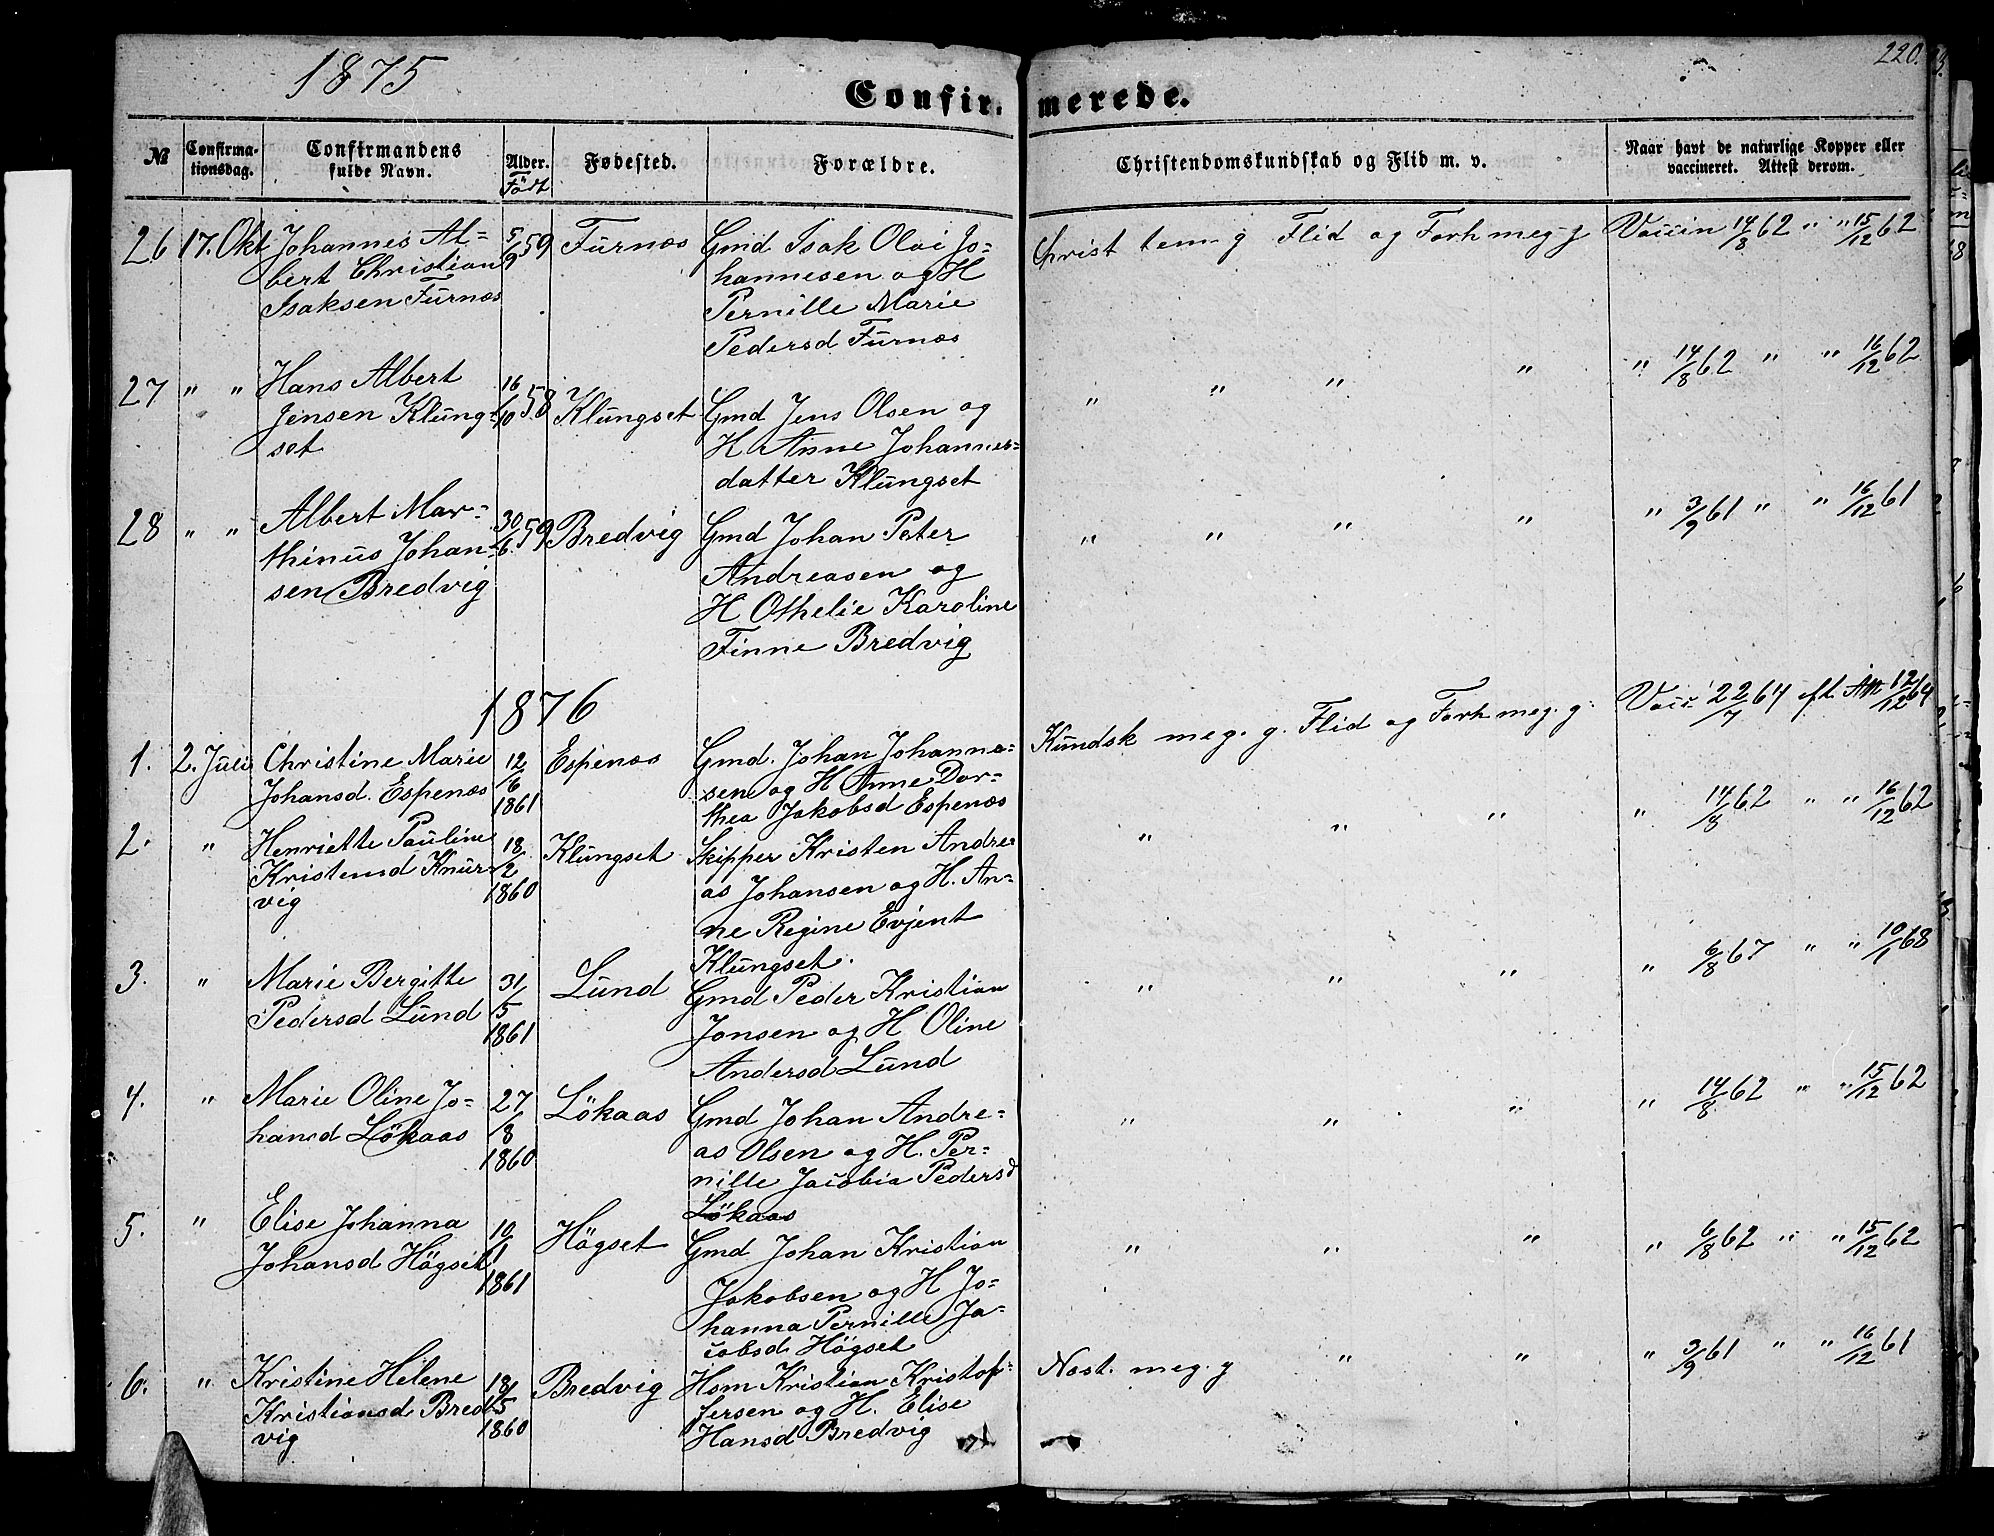 1875
220.
Confir- merede.
№ Confirma-tionsdag. Confirmandens fulde Navn. Alder. Født Fødested. Forældre. Christendomskundskab og Flid m. v. Naar havt de naturlige Kopper eller vaccineret. Attest derom.
26 17. Okt Johannes Al= 5/9 59 Furnæs Gmd Isak Olai Jo= Christ tem- g Flid og Forh meg- g Vaccin 14/8 62 " " 15/12 62
bert Christian hannesen og H
Isaksen Furnæs Pernille Marie
Pedersd Furnæs
27 " " Hans Albert 16/10 58 Klungset Gmd Jens Olsen og " " " " " 14/8 62 " " 16/12 62
Jensen Klung= H Anne Johannes=
set datter Klungset
28 " " Albert Mar= 30/6 59 Bredvig Gmd Johan Peter " " " " " 3/9 61 " " 16/12 61
thinus Johan= Andreasen og
sen Bredvig H Othelie Karoline
Finne Bredvig
1876
1. 2. Juli Christine Marie 12/6 1861 Espenæs Gmd. Johan Johanne= Kundsk meg. g. Flid og Forh meg. g. Vacc 22/7 64 ft. Att 12/12 64
Johansd. Espenæs sen og H Anne Dor=
thea Jakobsd Espenæs
2. " Henriette Pauline 18/2 1860 Klungset Skipper Kristen Andre= " " " " 14/8 62 " " 16/12 62
Kristensd Knur= as Johansen og H. An=
vig ne Regine Evjent
Klungset.
3. " Marie Bergitte 31/5 1861 Lund Gmd Peder Kristian " " " " 6/8 67 " " 10/1 68
Pedersd Lund Jonsen og H Oline
Andersd Lund
4. " Marie Oline Jo= 27/8 1860 Lökaas Gmd Johan Andre= " " " " 14/8 62 " " 15/12 62
hansd Lökaas as Olsen og H. Per=
nille Jacobia Pedersd
Lökaas
5. " Elise Johanna 10/1 1861 Högset Gmd Johan Kristian " " " " 6/8 62 " " 15/12 62
Johansd Högset Jakobsen og H Jo=
hanna Pernille Ja=
cobsd Högset
6. " Kristine Helene 18/5 1860 Bredvig Hsm Kristian Kristof= Nost. meg. g " " " 3/9 61 " " 16/12 61
Kristiansd Bred= fersen og H. Elise
vig Hansd Bredvig